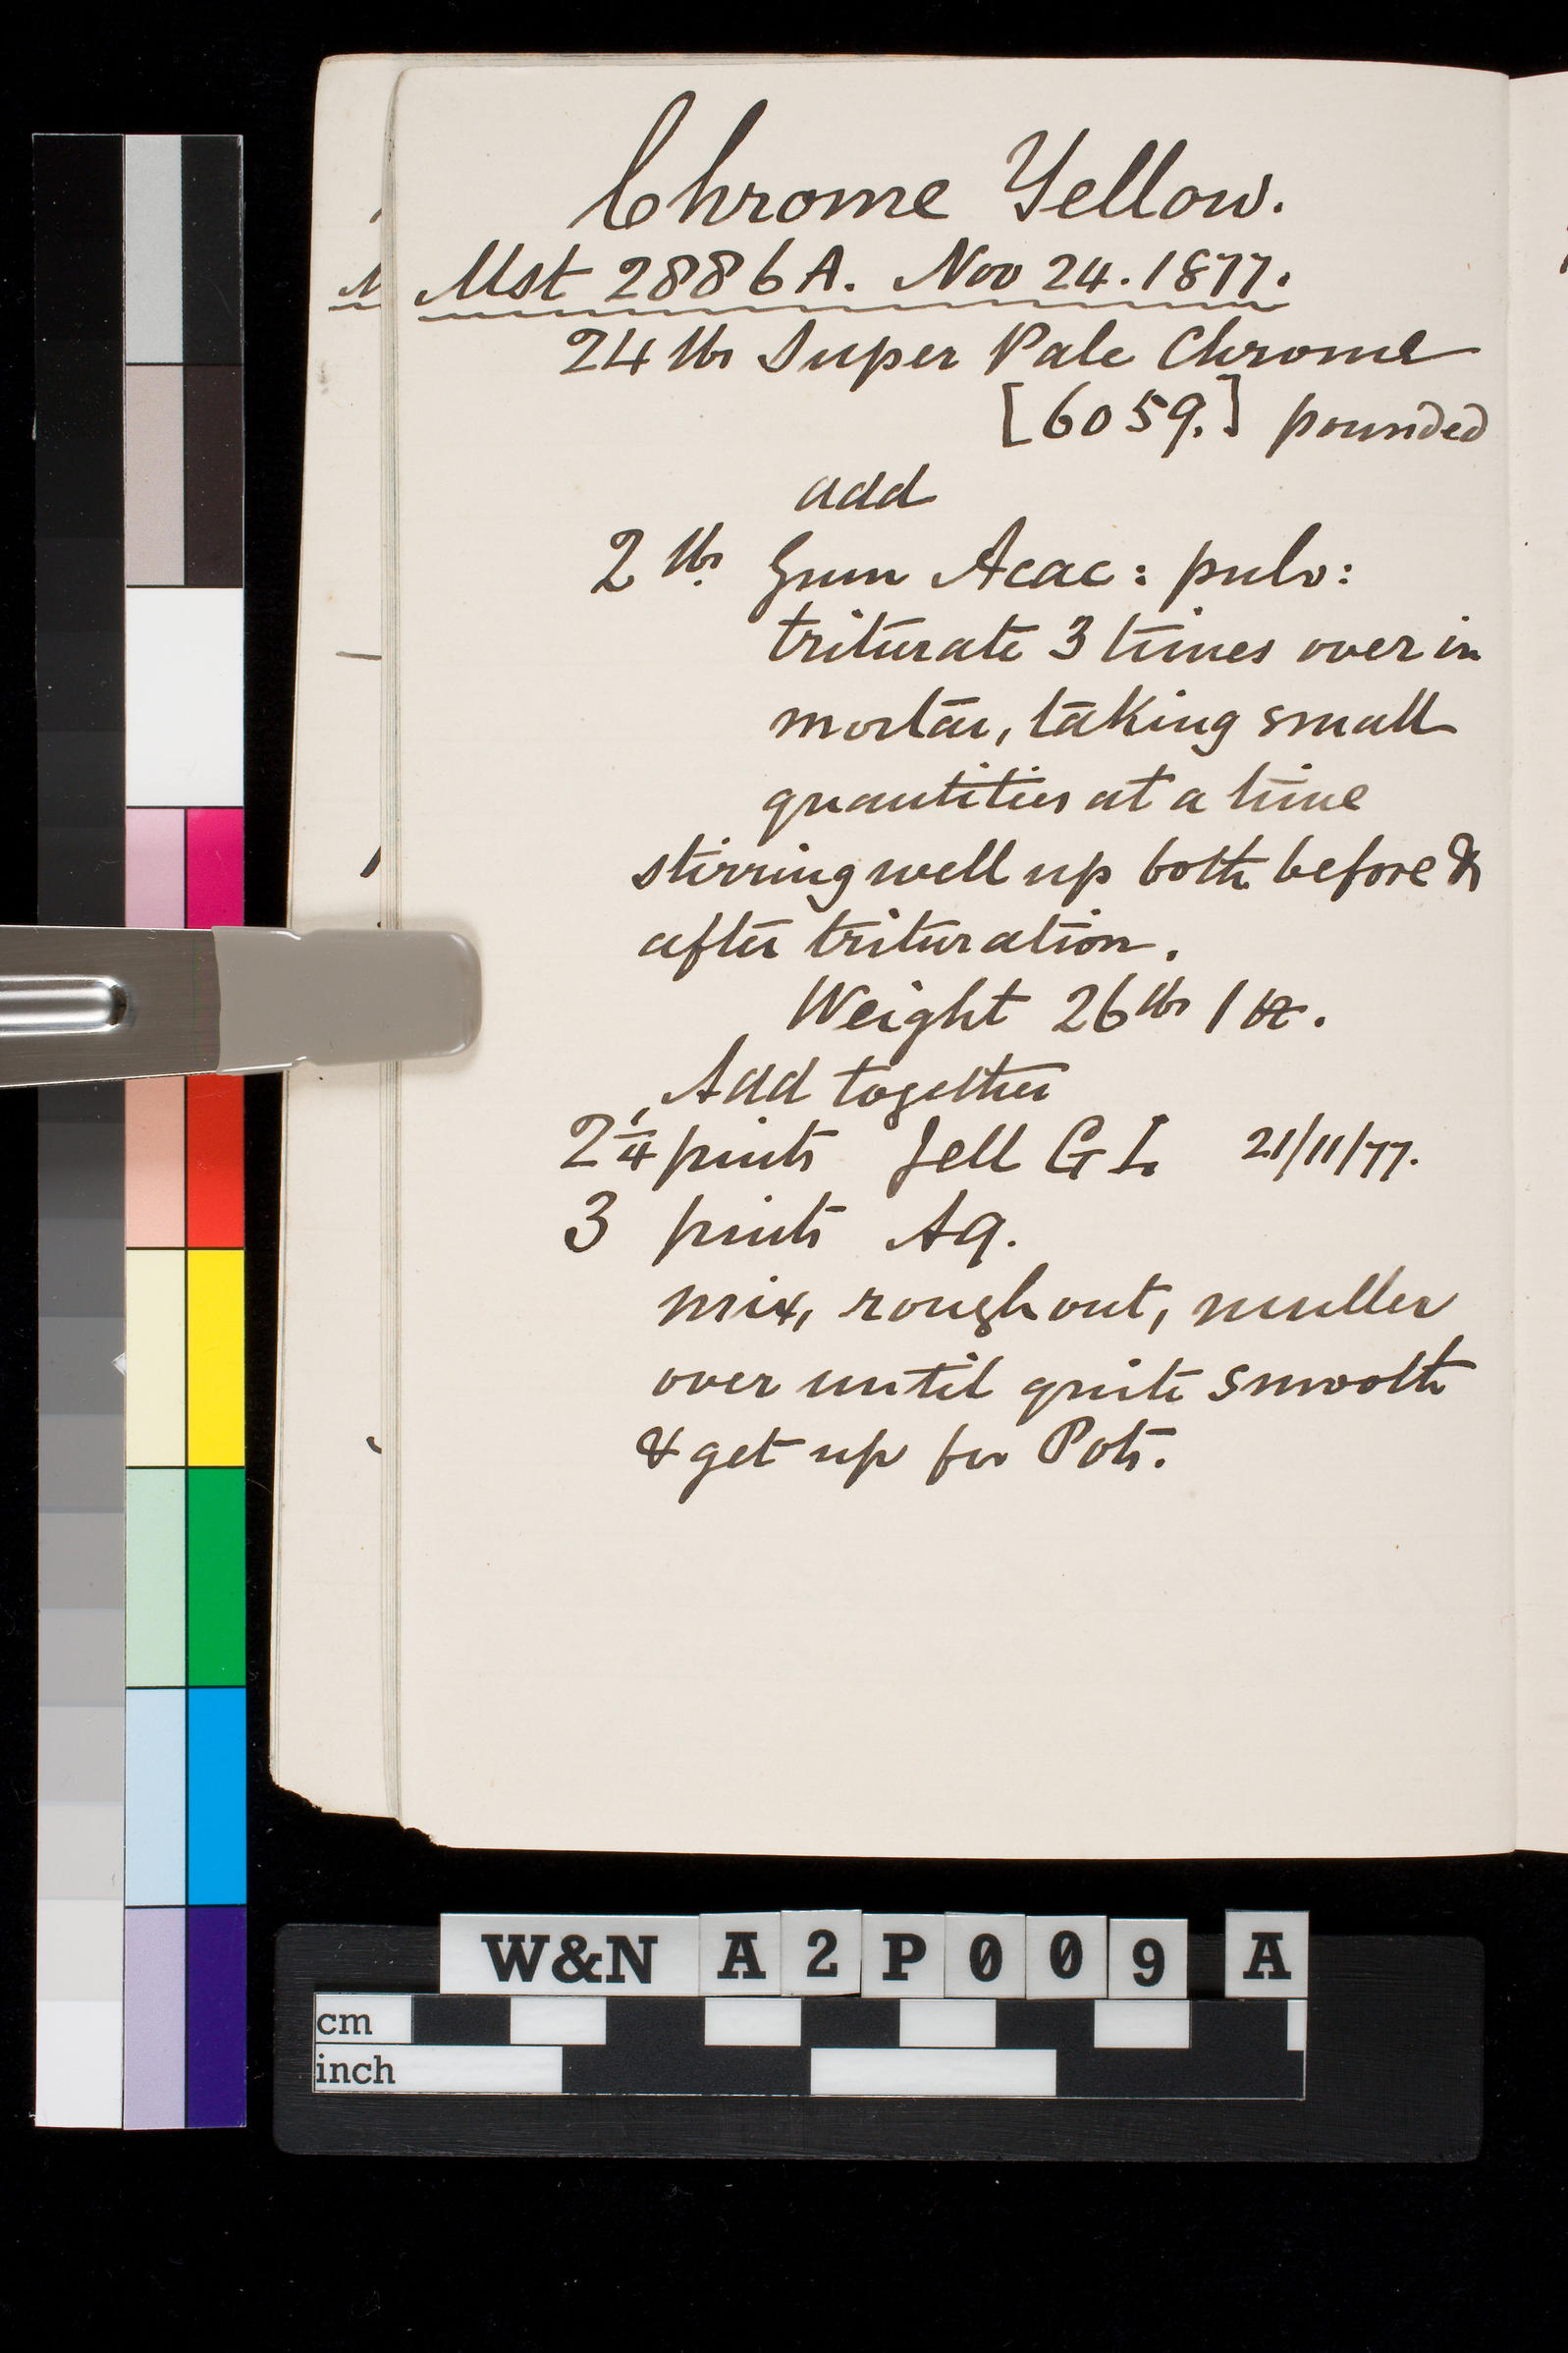 Chrome Yellow.
Mst 2886A. Nov 24. 1877.
24 lbs Super Pale Chrome
[6059.] pounded
add
2 lbs. Gum Acac: pulv:
triturate 3 times over in
mortar, taking small
quantities at a time
stirring well up both before &
after trituration.
Weight 26 lbs 1
Add together
2 1/4 pints Jell G I. 21/11/77.
3 pints Aq.
mix, rough out, muller
over until quite smooth
& get up for Pots.
W&N A2P009 A
cm
inch